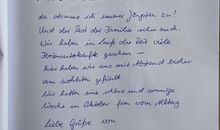 da stimme ich unserer Jüngsten zu!
Und der Rest der Familie sicher auch.
Wir haben im Laufe der Zeit viele
Ferienunterkünfte gesehen –
hier haben wir uns mit Abstand bisher
am wohlsten gefühlt.
Wir hatten eine schöne und sonnige
Woche im Oktober fern vom Alltag.
Liebe Grüße von